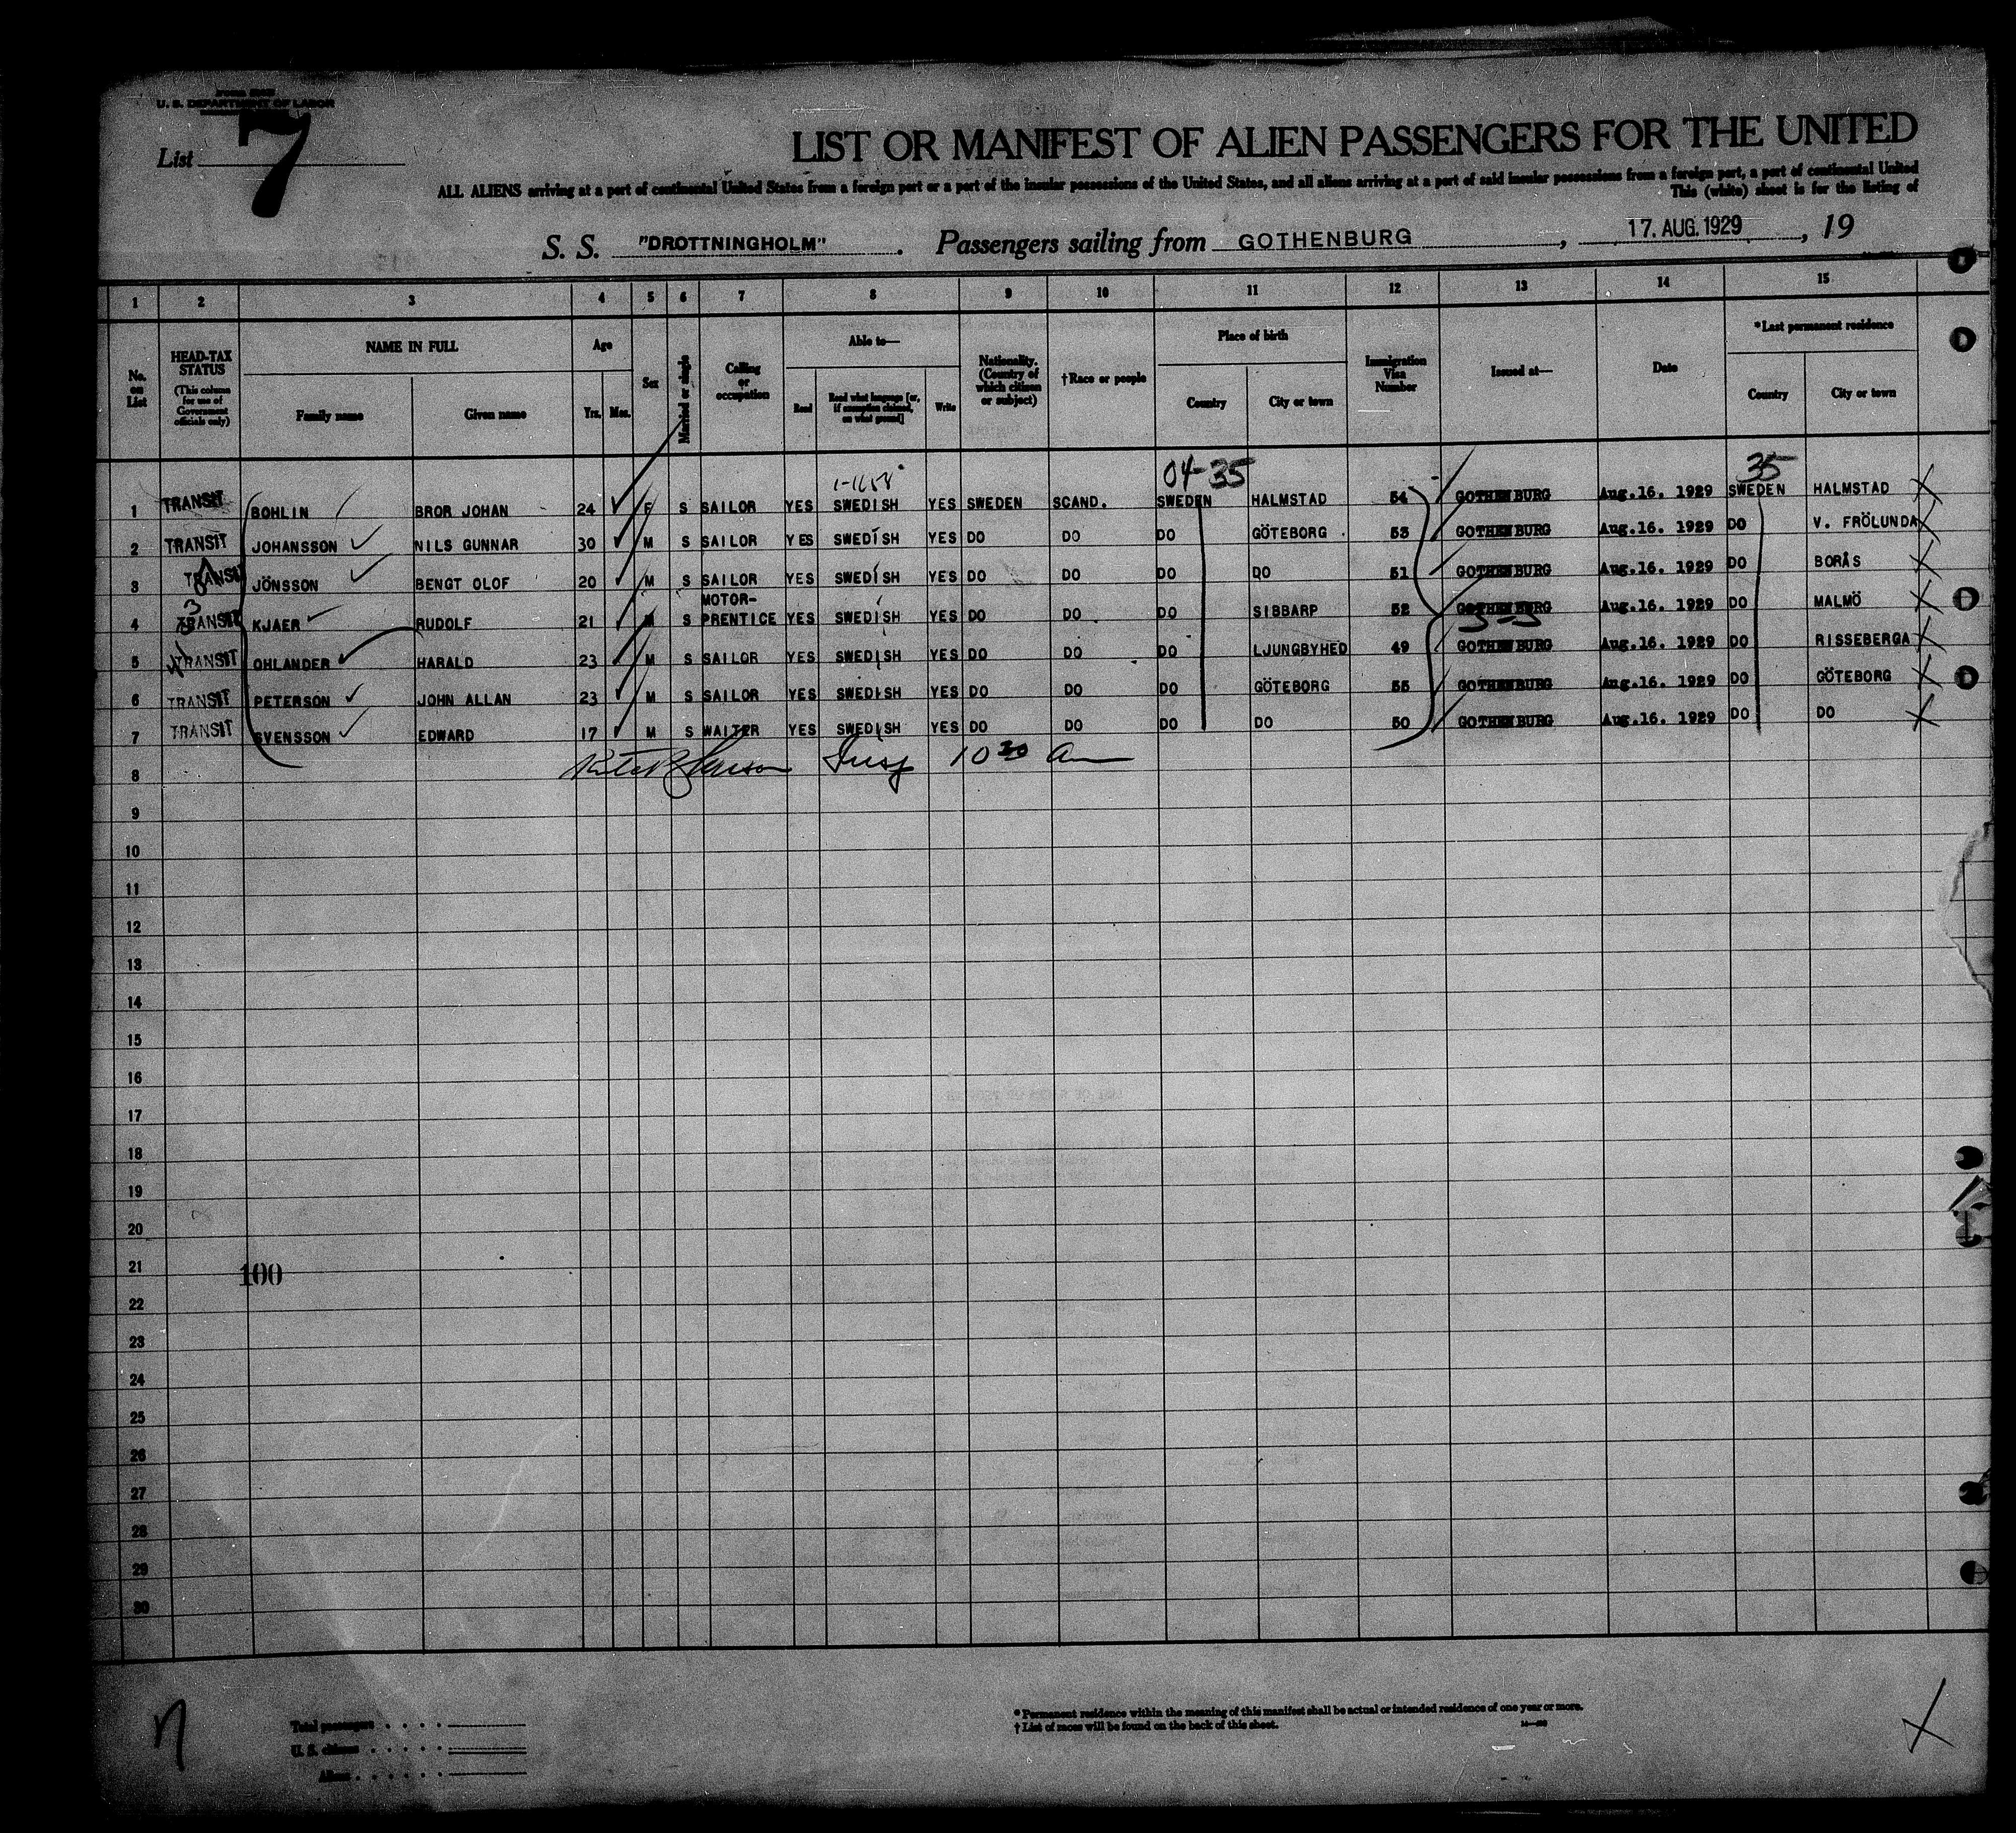 U. S. DEPARTMENT OF LABOR
List 7
LIST OR MANIFEST OF ALIEN PASSENGERS FOR THE UNITED
ALL ALIENS arriving at a port of continental United States from a foreign port or a port of the insular possessions of the United States, and all aliens arriving at a port of said insular possessions from a foreign port, a port of continental United
This (white) sheet is for the listing of
S. S. "DROTTNINGHOLM". Passengers sailing from GOTHENBURG, 17. AUG. 1929, 19
1 2 3 4 5 6 7 8 9 10 11 12 13 14 15
No. on List
HEAD-TAX STATUS (This column for use of Government officials only)
NAME IN FULL
Family name Given name
Age
Yrs. Mos.
Sex
Married or single
Calling or occupation
Able to—
Read Read what language [or, if exemption claimed, on what ground] Write
Nationality. (Country of which citizen or subject)
†Race or people
Place of birth
Country City or town
Immigration Visa Number
Issued at—
Date
*Last permanent residence
Country City or town
04-35 35
1 TRANSIT BOHLIN BROR JOHAN 24 F S SAILOR YES SWEDISH YES SWEDEN SCAND. SWEDEN HALMSTAD 54 GOTHENBURG Aug.16. 1929 SWEDEN HALMSTAD X
2 TRANSIT JOHANSSON NILS GUNNAR 30 M S SAILOR YES SWEDISH YES DO DO DO GÖTEBORG 53 GOTHENBURG Aug.16. 1929 DO V. FRÖLUNDA X
3 TRANSIT JÖNSSON BENGT OLOF 20 M S SAILOR YES SWEDISH YES DO DO DO DO 51 GOTHENBURG Aug.16. 1929 DO BORÅS X
4 TRANSIT KJAER RUDOLF 21 M S MOTOR-PRENTICE YES SWEDISH YES DO DO DO SIBBARP 52 GOTHENBURG Aug.16. 1929 DO MALMÖ X
5 TRANSIT OHLANDER HARALD 23 M S SAILOR YES SWEDISH YES DO DO DO LJUNGBYHED 49 GOTHENBURG Aug.16. 1929 DO RISSEBERGA X
6 TRANSIT PETERSON JOHN ALLAN 23 M S SAILOR YES SWEDISH YES DO DO DO GÖTEBORG 55 GOTHENBURG Aug.16. 1929 DO GÖTEBORG X
7 TRANSIT SVENSSON EDWARD 17 M S WAITER YES SWEDISH YES DO DO DO DO 50 GOTHENBURG Aug.16. 1929 DO DO X
Insp 10 30 am
8
9
10
11
12
13
14
15
16
17
18
19
20
21 100
22
23
24
25
26
27
28
29
30
Total passengers
U. S. citizens
Aliens
* Permanent residence within the meaning of this manifest shall be actual or intended residence of one year or more.
† List of races will be found on the back of this sheet.